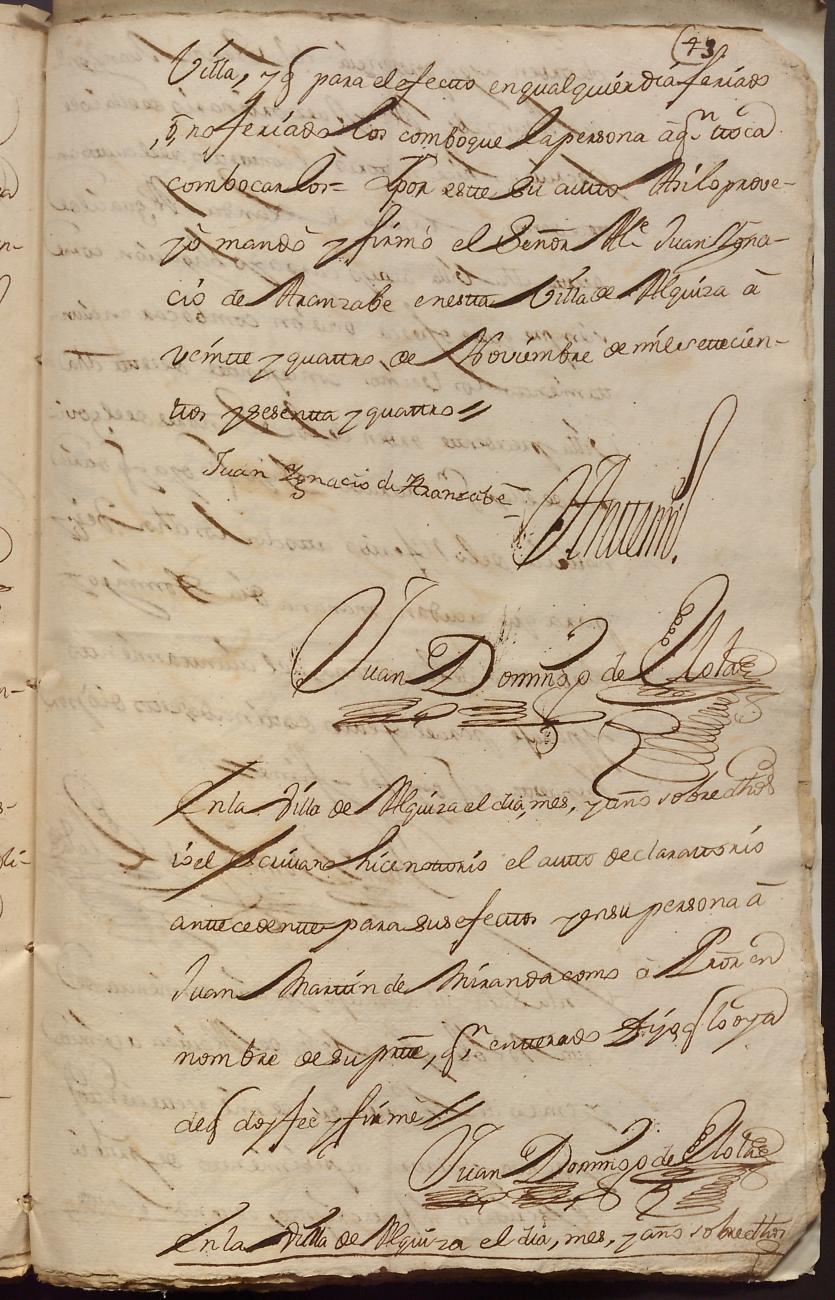 43
Villa, y q para el efecto en qualquier dia feriado
, ō no feriado los comboque la persona â qn ttoca
combocarlos= Y por estte su autto Asi lo prove-
yò mandò y firmò el Señor Alce Juan Igna-
cio de Aranzabe en estta Villa de Alquiza â
veintte y quattro de Noviembre de mil settecien-
ttos y sesentta y quattro //
Juan Ignacio de Aranzabe
Antemi.
Juan Domingo de
En la Villa de Alquiza el dia, mes, y año sobre dhos
io el Escrivano hice nottorio el autto declarattorio
anttecedentte para sus efecttos y en su persona â
Juan Marttin de Miranda como â Pror en
nombre de su ptte, qn entterado Dijo q lo oya
de q doy feè y firmè //
Juan Domingo de
En la Villa de Alquiza el dia, mes, y año sobre dhos